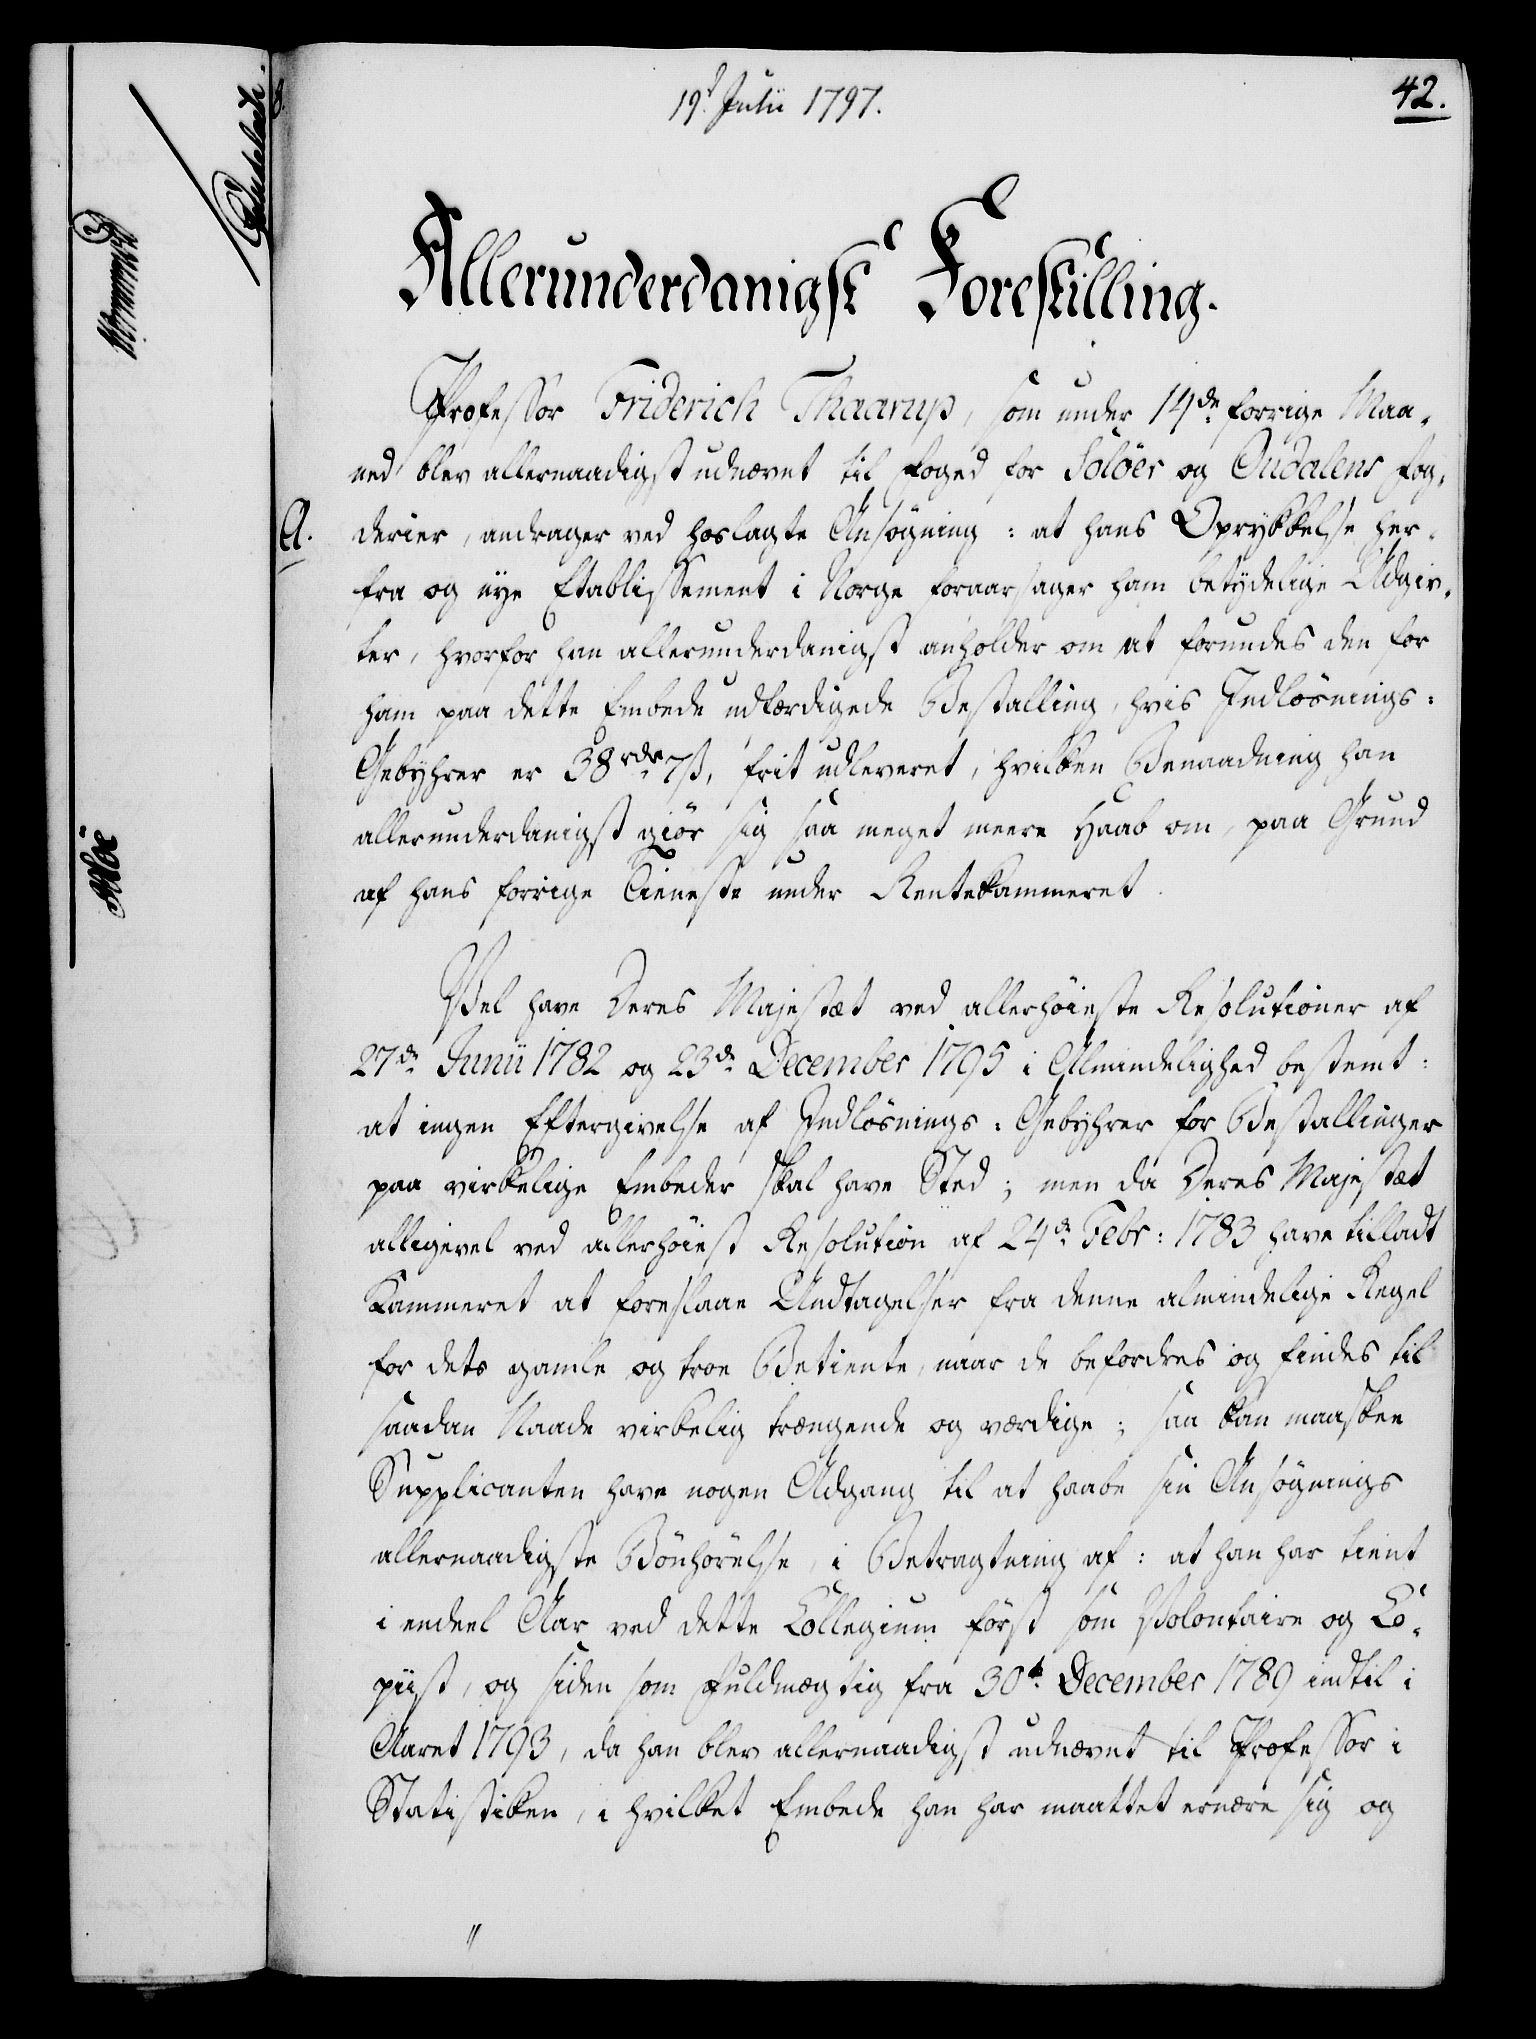 19d Julii 1797.
42.
Allerunderdanigst Forestilling.
Professor Friderich Thaarup, som under 14de forrige Maa-
ned blev allernaadigst udnævnt til Foged for Soløer og Oudalens Fog-
A.
derier, andrager ved hoslagte Ansøgning: at hans Oprykkelse her-
fra og nye Etablissement i Norge foraarsager ham betydelige Udgiv-
ter, hvorfor han allerunderdanigst anholder om at forundes den for
ham paa dette Embede udfærdigede Bestalling, hvis Indløsnings-
Gebyhrer er 38 rdr 7 ß, frit udleveret, hvilken Benaadning han
allerunderdanigst giør sig saa meget meere Haab om, paa Grund
af hans forrige Tieneste under Rentekammeret.
Vel have Deres Majestæt ved allerhøieste Resolutioner af
27de Junii 1782 og 23de December 1795 i Almindelighed bestemt:
at ingen Eftergivelse af Indløsnings-Gebyhrer for Bestallinger
paa virkelige Embeder skal have Sted; men da Deres Majestæt
alligevel ved allerhøiest Resolution af 24de Febr: 1783 have tilladt
Kammeret at foreslaae Undtagelser fra denne almindelige Regel
for dets gamle og troe Betiente, naar de befordres og findes til
saadan Naade virkelig trængende og værdige; saa kan maaskee
Supplicanten have nogen Adgang til at haabe sin Ansøgnings
allernaadigste Bønhørelse, i Betragtning af: at han har tient
i endeel Aar ved dette Collegium først som Volontaire og Co-
piist, og siden som Fuldmægtig fra 30te December 1789 indtil i
Aaret 1793, da han blev allernaadigst udnævnt til Professor i
Statistiken, i hvilket Embede han har maattet ernære sig og